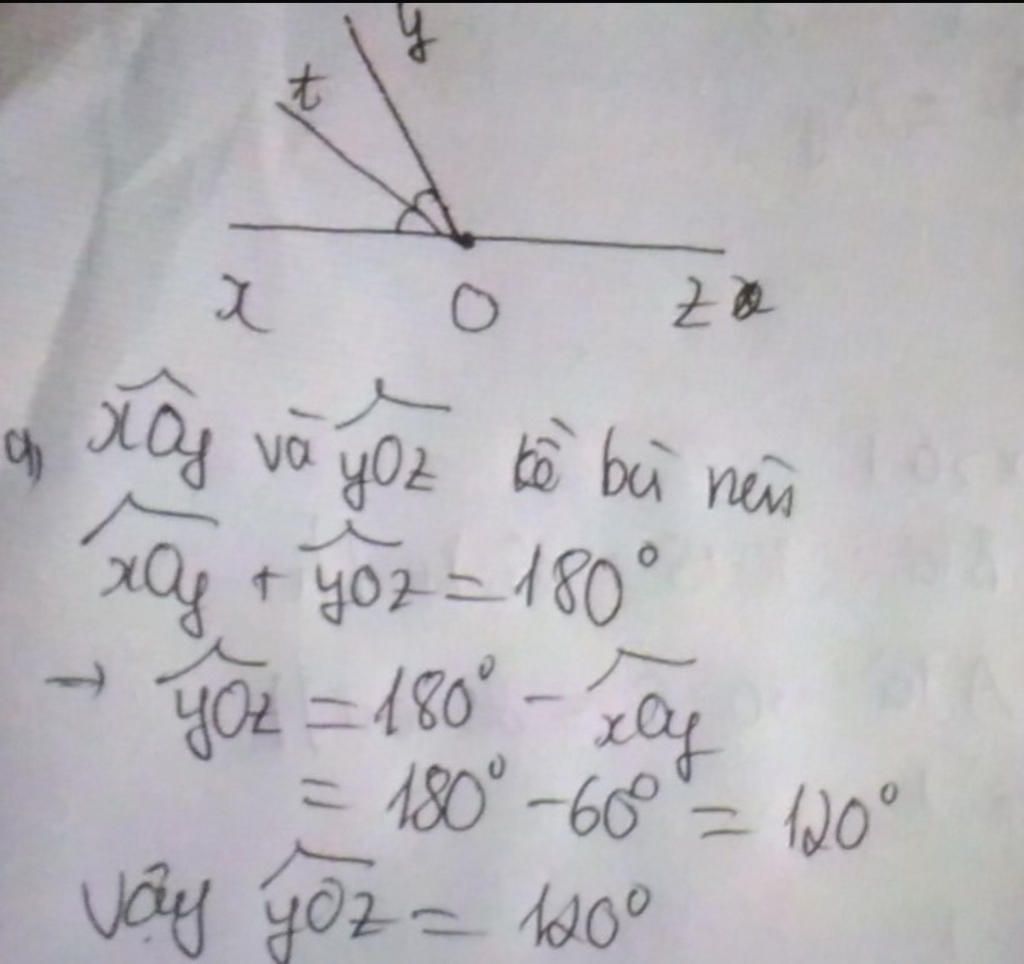 y
t
x O z
a, xOy và yOz kề bù nên
xOy + yOz = 180°
→ yOz = 180° - xOy
= 180° - 60° = 120°
Vậy yOz = 120°